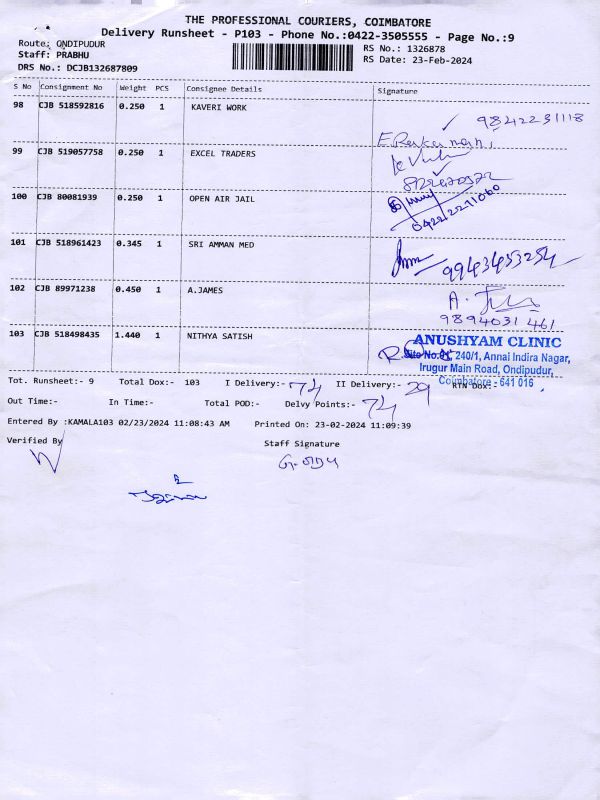 THE PROFESSIONAL COURIERS, COIMBATORE
Delivery Runsheet - P103 - Phone No.:0422-3505555 - Page No.:9
Route: ONDIPUDUR
RS No.: 1326878
Staff: PRABHU
RS Date: 23-Feb-2024
DRS No.: DCJB132687809
S No Consignment No Weight PCS Consignee Details Signature
98 CJB 518592816 0.250 1 KAVERI WORK
9842231118
99 CJB 519057758 0.250 1 EXCEL TRADERS
100 CJB 80081939 0.250 1 OPEN AIR JAIL
101 CJB 518961423 0.345 1 SRI AMMAN MED
9943453254
102 CJB 89971238 0.450 1 A.JAMES
9894031461
103 CJB 518498435 1.440 1 NITHYA SATISH
ANUSHYAM CLINIC
Site No. 240/1, Annai Indira Nagar,
Irugur Main Road, Ondipudur,
Coimbatore - 641 016
Tot. Runsheet:- 9 Total Dox:- 103 I Delivery:- 74 II Delivery:- 29 RTN Dox:-
Out Time:- In Time:- Total POD:- Delvy Points:- 74
Entered By :KAMALA103 02/23/2024 11:08:43 AM Printed On: 23-02-2024 11:09:39
Verified By Staff Signature